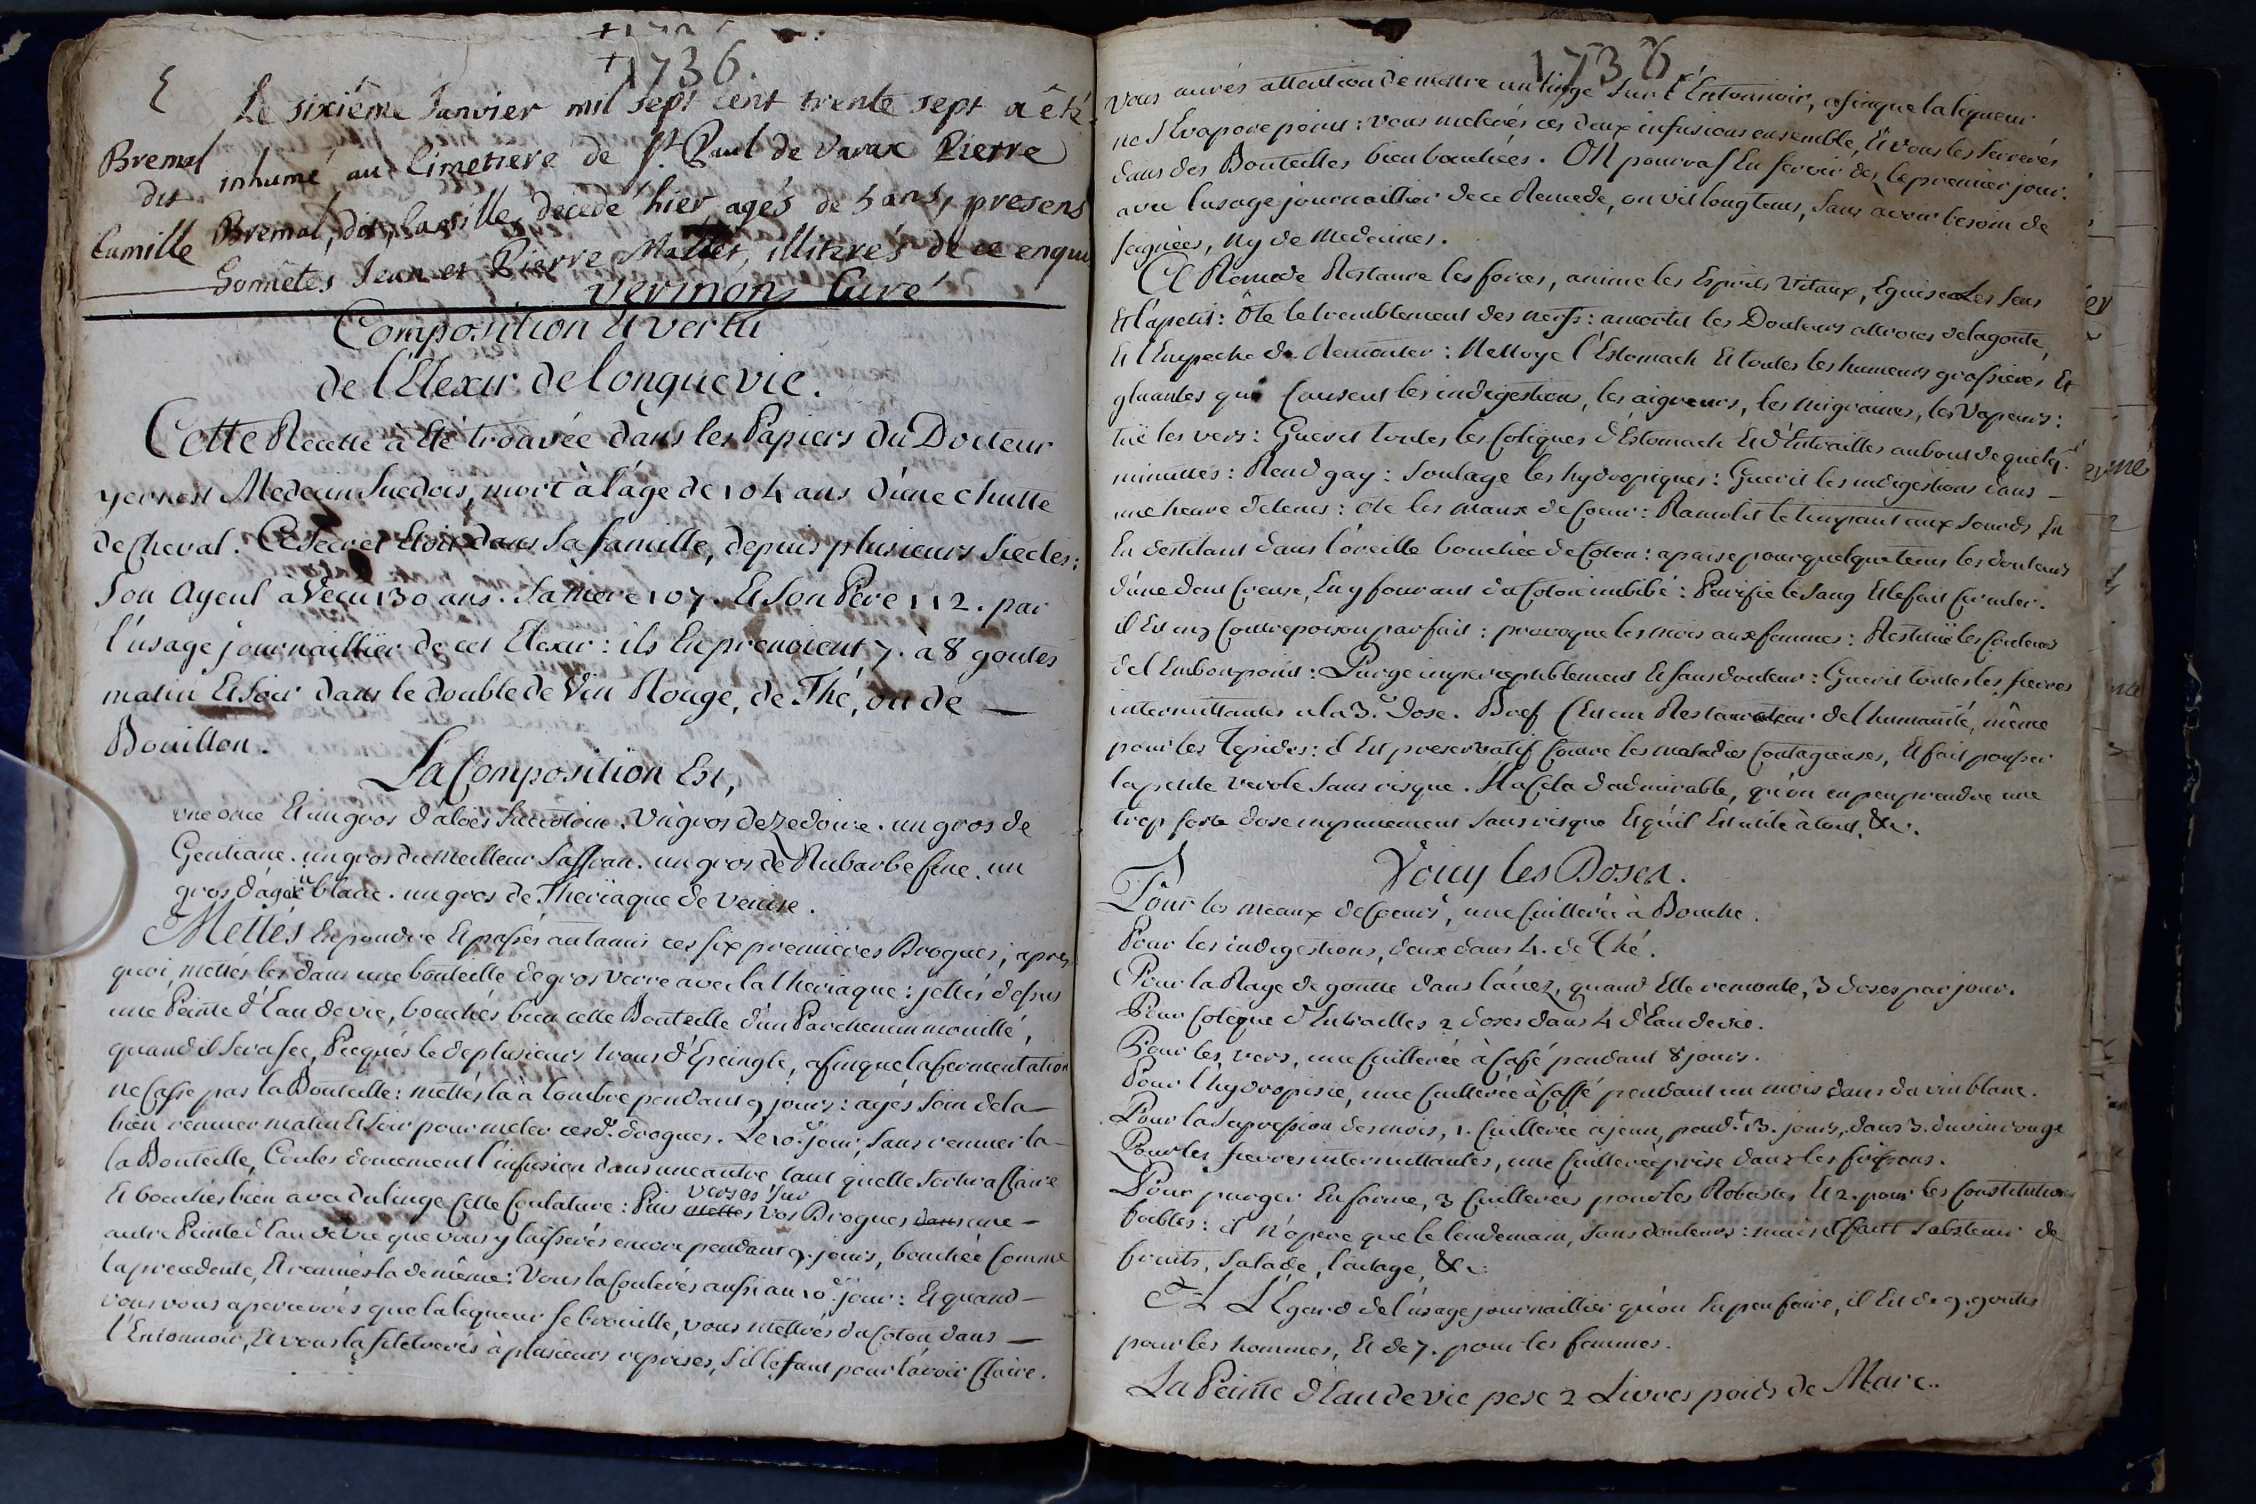 1736.
Le sixiême Janvier mil sept cent trente sept a êté
Bremal
dit
Camille
inhumé au Cimetiere de St. Paul de Varax Pierre
Bremal, dit, Camille, decedé hier agés de 5 ans, presens
Gomêtes Jean et Pierre Mallet, illiterés de ce enquis
Vermon, Curé
Composition Et vertu
de l'Elexir de longue vie.
Cette Recette à Eté trouvée dans les Papiers du Docteur
yernest Médecin Suedois, mort à l'age de 104 ans d'une chutte
de Cheval. Ce secret Etoit dans sa famille, depuis plusieurs Siecles:
Son Ayeul a Vecu 130 ans. Sa mere 107. Et Son Pere 112. par
l'usage journaillier de cet Elexir: ils En prenoient 7. à 8 goutes
matin Et Soir dans le double de Vin Rouge, de Thé, ou de
Bouillon.
La Composition Est,
une once Et un gros d'aloës Succotrin. Un gros de Zedoire. un gros de
Gentiane. un gros du meilleur Saffran. un gros de Rubarbe fine. un
gros d'agaric blanc. un gros de Theriaque de Venise.
Mettés En poudre Et passés au tamis ces six premieres Drogues; apres
quoi, mettés les dans une bouteille de gros verre avec la theriaque: jettés dessus
une Peinte d'Eau de vie, bouchés bien cette Bouteille d'un Parchemin mouillé,
quand il Sera sec, Picqués le de plusieurs trous d'Epeingle, afin que la fermentation
ne Casse pas la Bouteille: mettés la à l'ombre pendant 9 jours: ayés soin de la
bien remuer matin Et Soir pour meler ces d. drogues. Le 10.e jour, Sans remuer la
la Bouteille, Coulés doucement l'infusion dans une autre tant quelle Sortira Claire
Et bouchés bien avec du linge Cette Coulature: Puis mettes versés sur vos Drogues dans une
autre Peinte d'Eau de Vie que vous y laisserés encore pendant 9. jours, bouchée Comme
la precedente, Et remués la de même: Vous la Coulerés aussi au 10.e jour: Et quand
vous vous apercevrés que la liqueur se brouille, vous mettrés du Coton dans
l'Entonnoir, Et vous la filtrerés à plusieurs reprises, S'il le faut pour l'avoir Claire.
1736
Vous aurés attention de mettre un linge Sur l'Entonnoir, afin que la liqueur
ne S'Evapore point: vous melerés ces deux infusions ensemble, Et vous les Serrerés
dans des Bouteilles bien bouchées. On pourra s'En servir des le premier jour.
avec l'usage journaillier de ce Remede, on vit longtems, Sans avoir besoin de
seignées, Ny de Medecines.
Ce Remede Restaure les forces, anime les Esprits Vitaux, Eguise Les Sens
Et l'apetit: Ôte le tremblement des nerfs: amortit les Douleurs atroces de la goute,
Et l'Empeche de Remonter: Nettoye l'Estomach Et toutes les humeurs grossieres Et
gluantes qui Causent les indigestions, les aigreurs, les Migraines, les Vapeurs:
tuë les vers: Guerit toutes les Coliques d'Estomach Et d'Entrailles au bout de quelq.
minuttes: Rend gay: Soulage les hydropiques: Guerit les indigestions dans
une heure de tems: Ote les Maux de Coeur: Ramolit le timpant aux Sourds En
En destilant dans l'oreille bouchée de Coton: apaise pour quelque tems les douleurs
d'une dent Creuse, En y fourrant du Coton imbibé: Purifie le Sang Et le fait Circuler.
il Est un Contrepoison parfait: provoque les mois aux femmes: Restituë les Couleurs
de l'Embonpoint: Purge imperceptiblement Et sans douleur: Guerit toutes les fievres
intermittantes a la 3.e Dose. Bref C'Est un Restaurateur de l'humanité, même
pour les Tepides: il Est preservatif Contre les maladies Contagieuses, Et fait pousser
la petite verole Sans risque. Il a Cela d'admirable, qu'on en peu prendre une
trop forte dose impunement Sans risque Et qu'il Est utile à tout, &c.
Voicy les Doses.
Pour les meaux de Coeurs, une Cuillerée à Bouche.
Pour les indigestions, deux dans 4. de Thé.
Pour la Rage de goutte dans l'accez, quand Elle remonte, 3 doses par jour.
Pour Colique d'Entrailles 2 doses dans 4 d'Eau de vie.
Pour les vers, une Cuillerée à Café pendant 8 jours.
Pour l'hydropisie, une Cuillerée à Caffé pendant un mois dans du vin blanc.
Pour la Supression des mois, 1. Cuillerée a jeun, pend.t 3. jours, dans 3. du vin rouge
Pour les fievres intermittantes, une Cuillerée prise dans les frissons.
Pour purger En forme, 3 Cuillerées pour les Robustes Et 2. pour les Constitutions
foibles: il N'opere que le lendemain, Sans douleurs: mais il faut S'abstenir de
fruits, Salade, laitage, &c.
A L'Egard de l'usage journaillier qu'on En peu faire, il Est de 9. goutes
pour les hommes, Et de 7. pour les femmes.
La Peinte d'Eau de vie pese 2 Livres poids de Marc.